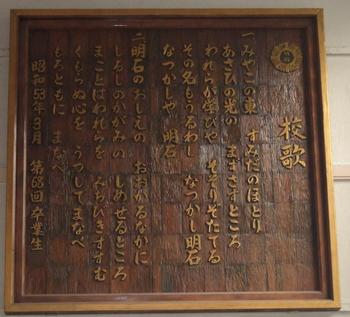 校歌
一みやこの東　すみだのほとり
あさひの光の　まずさすところ
われらが学びや　そだりそだてる
その名もうるわし　なつかし明石
なつかしや　明石
二明石のおしえの　おおかるなかに
しるしのかがみの　しめせるところ
まことはわれらを　みちびきすすむ
くもらぬ心を　うつしてまなべ
もろともに　まなべ
昭和53年3月　第68回卒業生